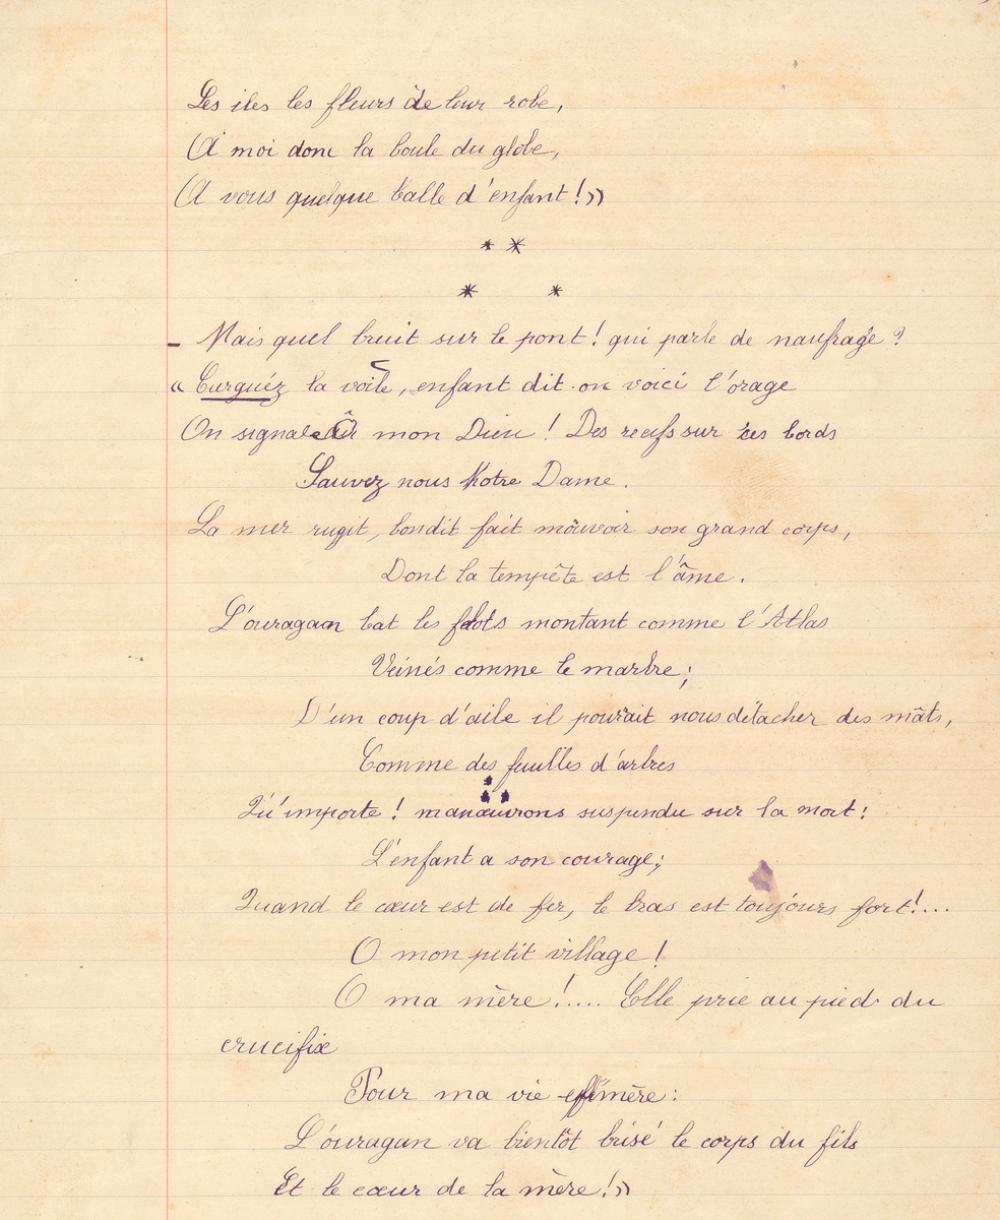 Les iles les fleurs de leur robe,
A moi donc la boule du globe,
A vous quelque balle d'enfant!»
* *
* *
- Mais quel bruit sur le pont! qui parle de naufrage?
« Carguéz la voile, enfant dit-on voici l'orage
On signale mon Dieu! Des recifs sur ces bords
Sauvez nous Notre Dame.
La mer rugit, bondit fait mouvoir son grand corps,
Dont la tempête est l'âme.
L'ouragan bat les flots montant comme l'Atlas
Veinés comme le marbre;
D'un coup d'aile il pourrait nous détacher des mâts,
Comme des feuilles d'arbres
Qu'importe! manœuvrons suspendu sur la mort:
L'enfant a son courage;
Quand le cœur est de fer, le bras est toujours fort!...
O mon petit village!
O ma mère!.... Elle prie au pied du
crucifix
Pour ma vie éffimère:
L'ouragan va bientôt brisé le corps du fils
Et le cœur de la mère!»